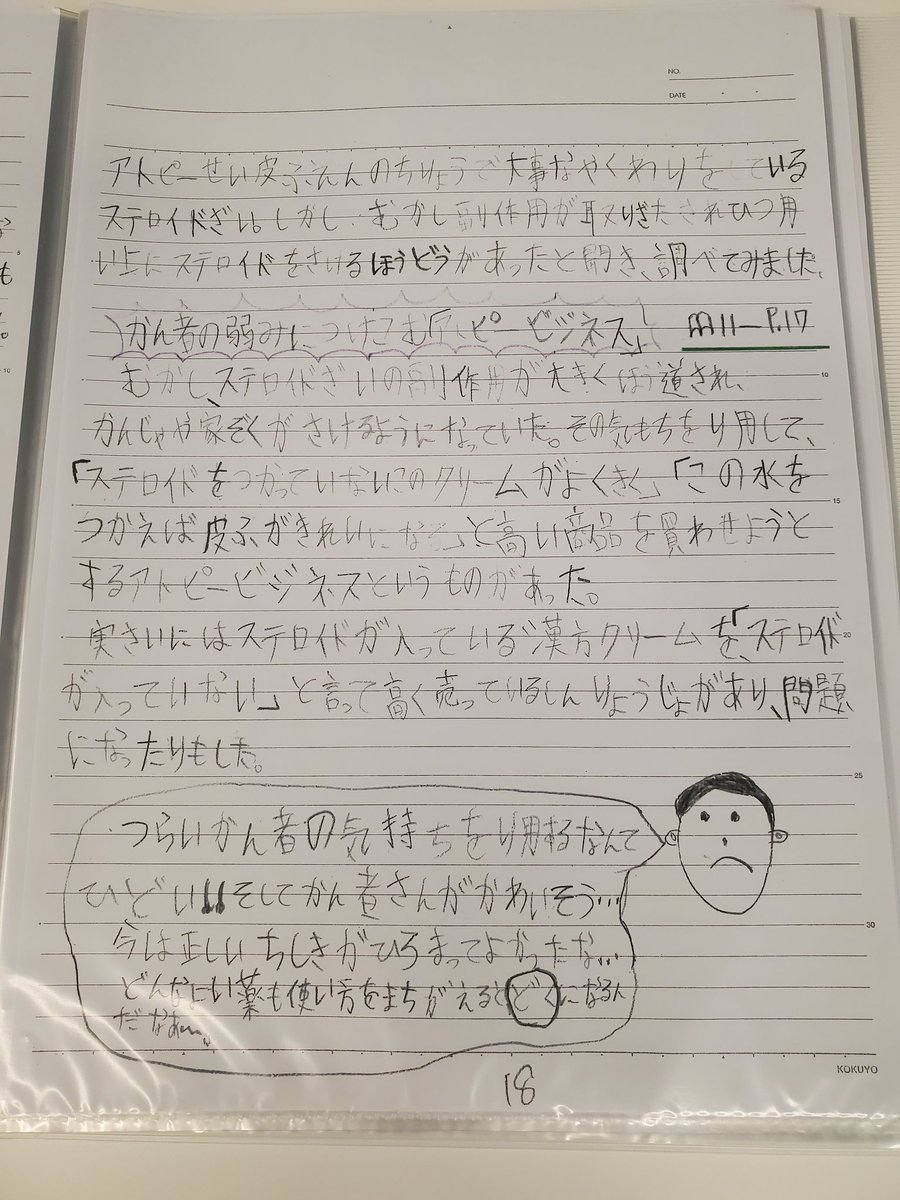 NO.
DATE
アトピーせい皮ふえんのちりょうで大事なやくわりをしている
ステロイドざい。しかし、むかし副作用が取りざたされひつ用
い上にステロイドをさけるほうどうがあったと聞き、調べてみました。
かん者の弱みにつけこむ「アトピービジネス」 P.17
むかし、ステロイドざいの副作用が大きくほう道され、
かんじゃや家ぞくがさけるようになっていた。その気もちをり用して、
「ステロイドをつかっていないこのクリームがよくきく」「この水を
つかえば皮ふがきれいになる」と高い商品を買わせようと
するアトピービジネスというものがあった。
実さいにはステロイドが入っている漢方クリームを、「ステロイド
が入っていない」と言って高く売っているしんりょうじょがあり、問題
になったりもした。
つらいかん者の気持ちをり用するなんて
ひどい!!そしてかん者さんがかわいそう…
今は正しいちしきがひろまってよかったな…
どんなにいい薬も使い方をまちがえるとどくになるん
だなあ〜。
5
10
15
20
25
30
KOKUYO
18